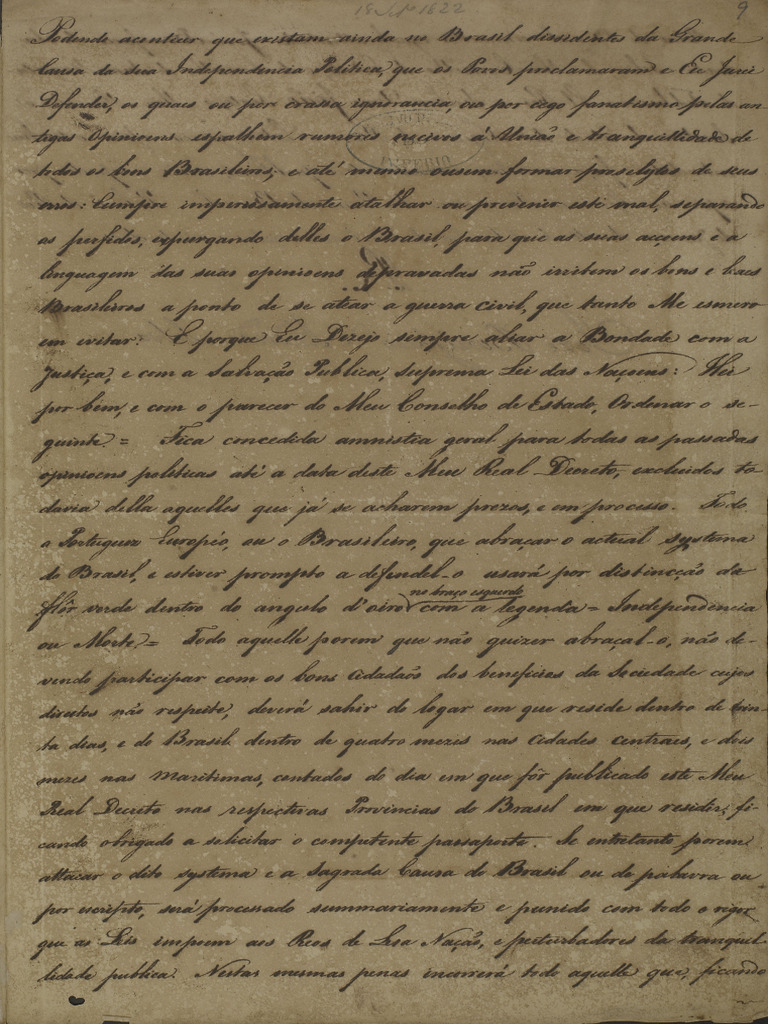 18 Set. 1822
9
Podendo acontecer que existam ainda no Brasil dissidentes da Grande
Causa da sua Independencia Politica, que os Povos proclamaram e Eu Jurei
Defender, os quaes ou por crassa ignorancia, ou por cego fanatismo pelas an-
tigas Opinioens espalhem rumores nocivos á União e tranquillidade de
todos os bons Brasileiros; e até mesmo ousem formar proselytos de seus
erros: Cumpre imperiosamente atalhar ou prevenir este mal, separando
os perfidos, expurgando delles o Brasil, para que as suas acçoens e a
linguagem das suas opinioens depravadas não irritem os bons e Leaes
Brasileiros a ponto de se atear a guerra civil, que tanto Me esmero
em evitar: E porque Eu Dezejo sempre aliar a Bondade com a
Justiça, e com a Salvação Publica, Suprema Lei das Naçoens: Hei
por bem, e com o parecer do Meu Conselho de Estado, Ordenar o se-
guinte = Fica concedida amnistia geral para todas as passadas
opinioens politicas até a data deste Meu Real Decreto, excluidos to-
davia della aquelles que já se acharem prezos, e em processo. Todo
o Portuguez Européo, ou o Brasileiro, que abraçar o actual systema
do Brasil, e estiver prompto a defendel-o usará por distincção da
flôr verde dentro do angulo d'oiro no braço esquerdo com a legenda = Independencia
ou Morte = Todo aquelle porem que não quizer abraçal-o, não de-
vendo participar com os bons Cidadaõs dos beneficios da Sociedade cujos
direitos não respeite, deverá sahir do logar em que reside dentro de trin-
ta dias, e do Brasil dentro de quatro mezes nas Cidades centraes, e dois
mezes nas maritimas, contados do dia em que fôr publicado este Meu
Real Decreto nas respectivas Provincias do Brasil em que residir, fi-
cando obrigado a solicitar o competente passaporte. Se entretanto porem
attacar o dito systema e a Sagrada Causa do Brasil ou de palavra ou
por escripto, será processado summariamente e punido com todo o rigor
que as Leis impoem aos Reos de Lesa Nação, e perturbadores da tranquil-
lidade publica. Nestas mesmas penas incorrerá todo aquelle que, ficando